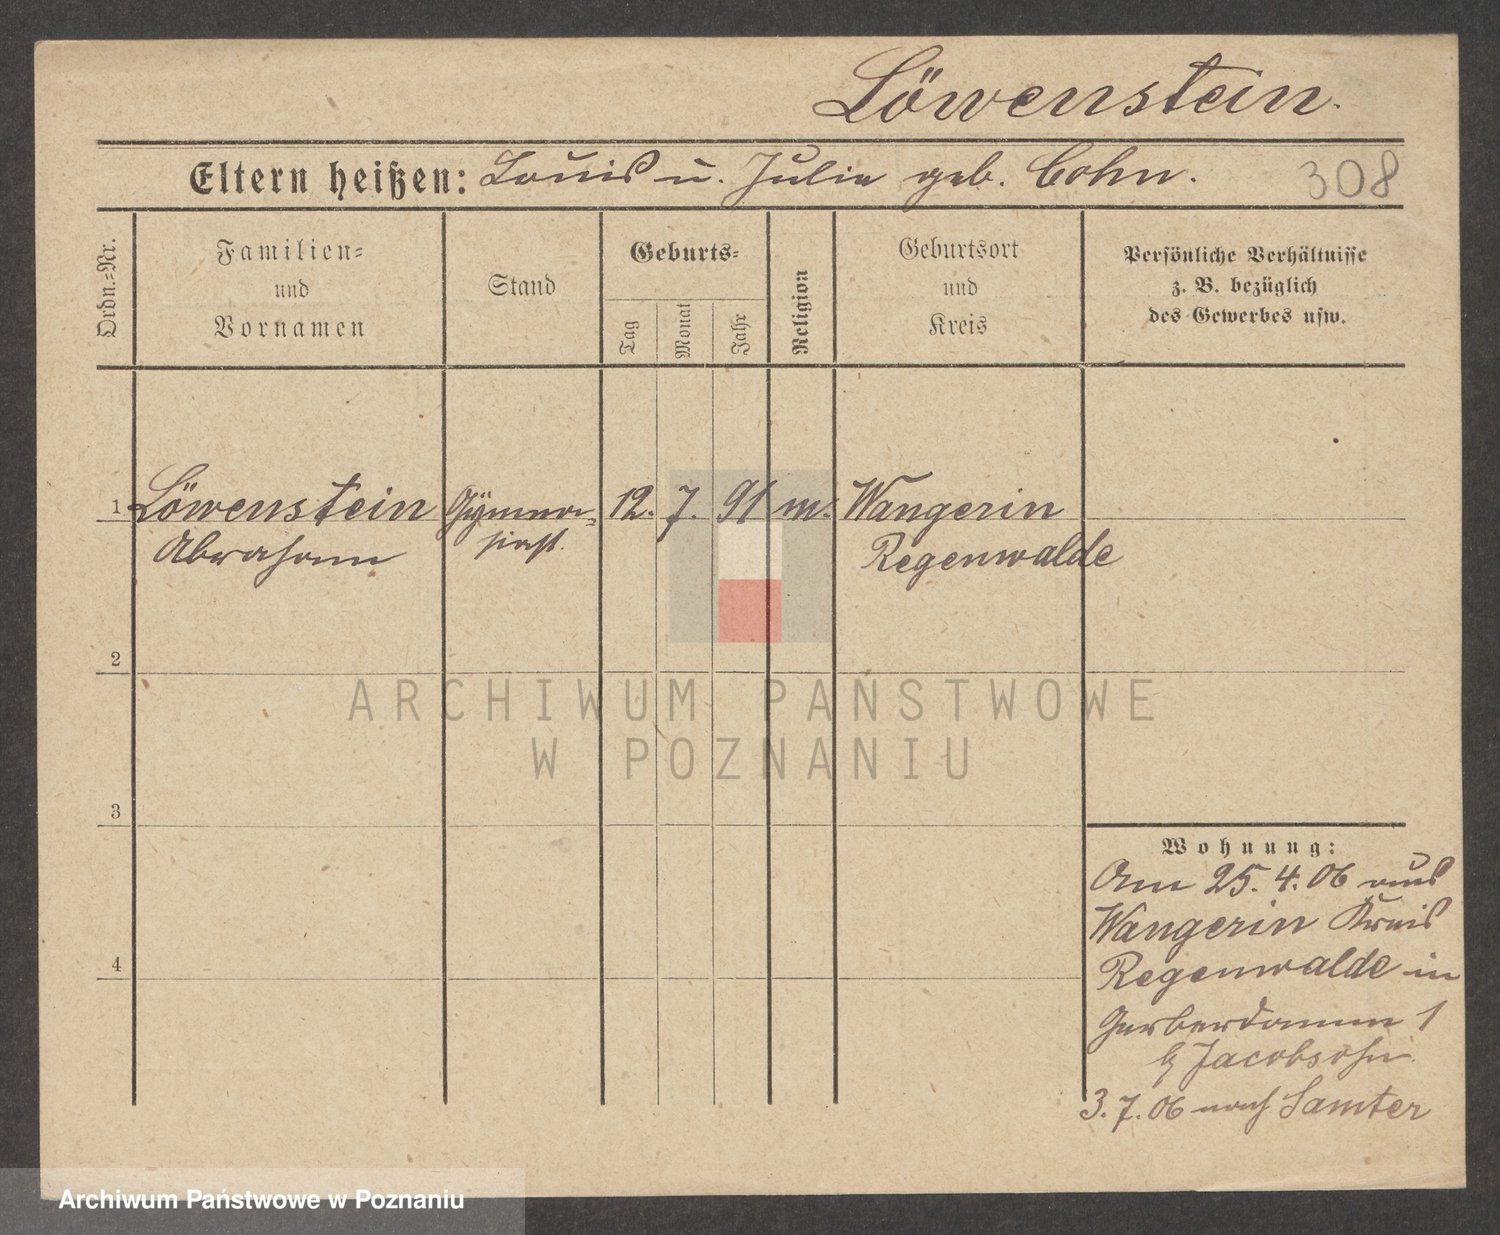 Löwenstein.
Eltern heißen: Louis u. Julie geb. Cohn. 308
Ordn.-Nr.
Familien-
und
Vornamen
Stand
Geburts-
Tag
Monat
Jahr
Religion
Geburtsort
und
Kreis
Persönliche Verhältnisse
z. B. bezüglich
des Gewerbes usw.
1 Löwenstein Gymna- 12. 7. 91 m. Wangerin
Abraham siast. Regenwalde
2
ARCHIWUM PAŃSTWOWE
W POZNANIU
3
Wohnung:
Am 25. 4. 06 aus
Wangerin Kreis
4
Regenwalde in
Gerberdamm 1
b Jacobsohn
3. 7. 06 nach Samter
Archiwum Państwowe w Poznaniu